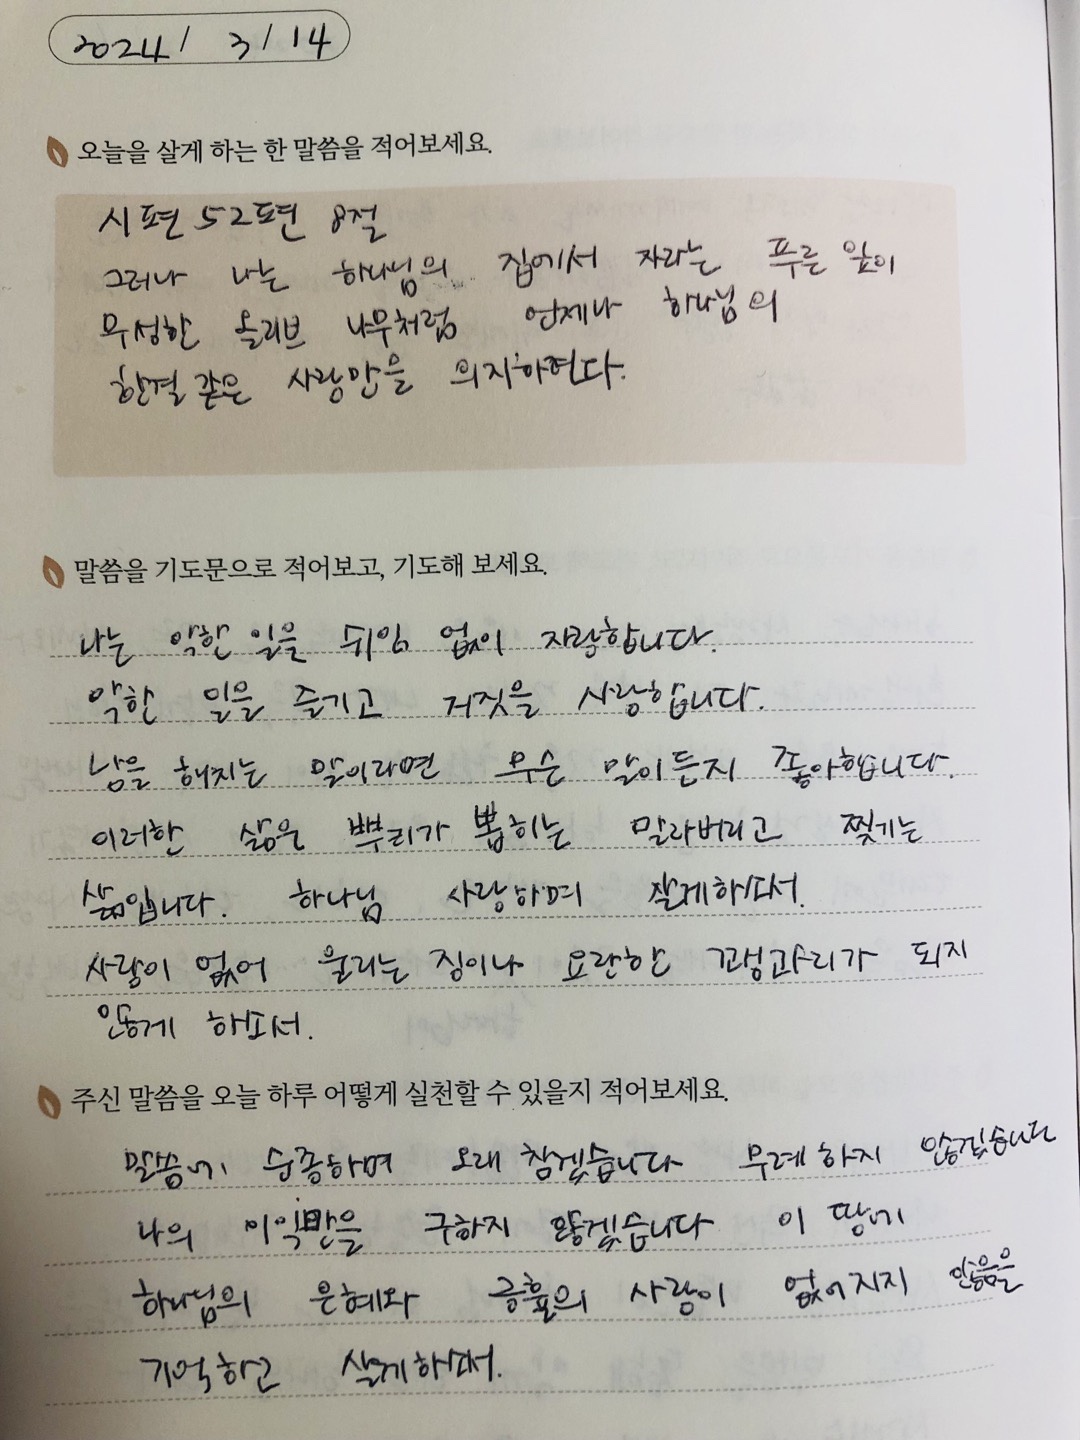 2024 / 3 / 14
오늘을 살게 하는 한 말씀을 적어보세요.
시편 52편 8절
그러나 나는 하나님의 집에서 자라는 푸른 잎이
무성한 올리브 나무처럼 언제나 하나님의
한결같은 사랑만을 의지하련다.
말씀을 기도문으로 적어보고, 기도해 보세요.
나는 악한 일을 쉬임 없이 자랑합니다.
악한 일을 즐기고 거짓을 사랑합니다.
남을 해치는 말이라면 무슨 말이든지 좋아합니다.
이러한 삶은 뿌리가 뽑히는 말라버리고 찢기는
삶입니다. 하나님 사랑하며 살게하소서.
사랑이 없어 울리는 징이나 요란한 꽹과리가 되지
않게 하소서.
주신 말씀을 오늘 하루 어떻게 실천할 수 있을지 적어보세요.
말씀에 순종하며 오래 참겠습니다 무례하지 않겠습니다
나의 이익만을 구하지 않겠습니다 이 땅에
하나님의 은혜와 긍휼의 사랑이 없어지지 않음을
기억하고 살게하소서.